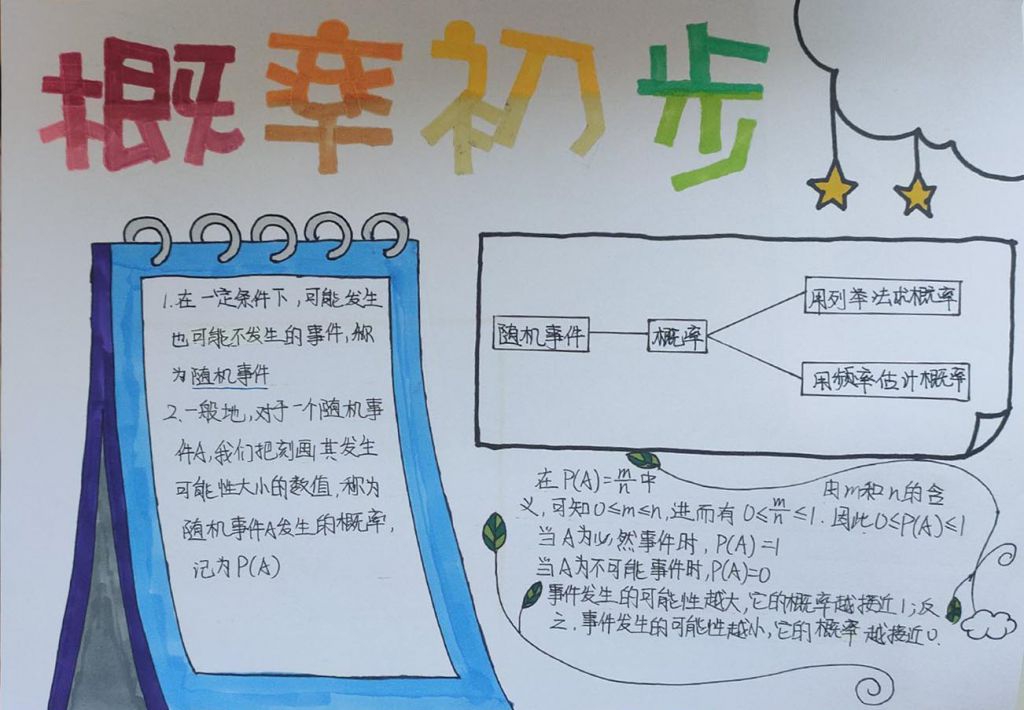 概率初步
1.在一定条件下,可能发生
也可能不发生的事件,称
为随机事件
2.一般地,对于一个随机事
件A,我们把刻画其发生
可能性大小的数值,称为
随机事件A发生的概率,
记为P(A)
随机事件
概率
用列举法求概率
用频率估计概率
在P(A)=m/n中 由m和n的含
义,可知0≤m≤n,进而有0≤m/n≤1.因此0≤P(A)≤1
当A为必然事件时,P(A)=1
当A为不可能事件时,P(A)=0
事件发生的可能性越大,它的概率越接近1;反
之.事件发生的可能性越小,它的概率越接近0.